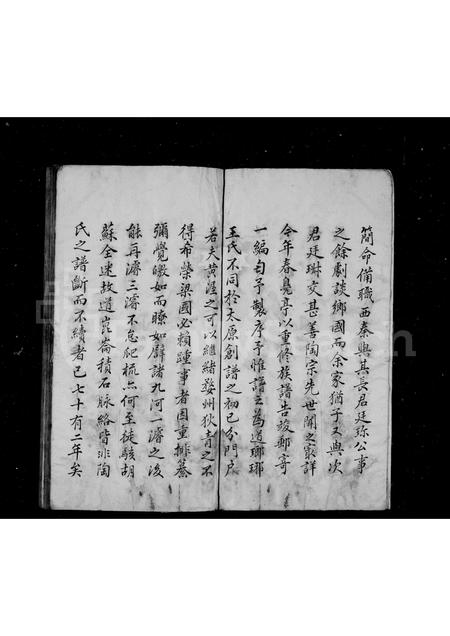 簡命備職西秦與其長君廷珎公事
之餘劇談鄉國而余家猶子又與次
君廷琳交甚善陶宗先世聞之最詳
今年春堯亭以重修族譜告竣郵寄
一編匄予製序予惟譜之為道瑯琊
王氏不同於太原創譜之初已分門戶
若夫黃涇之可以繼緒婺州狄青之不
得希榮梁國必賴踵事者因重排纂
彌覺皦如而瞭如譬諸九河一濬之後
能再濬三濬不怠爬梳亦何至披駭胡
蘇全迷故道崑崙積石脉絡皆非陶
氏之譜斷而不續者已七十有二年矣